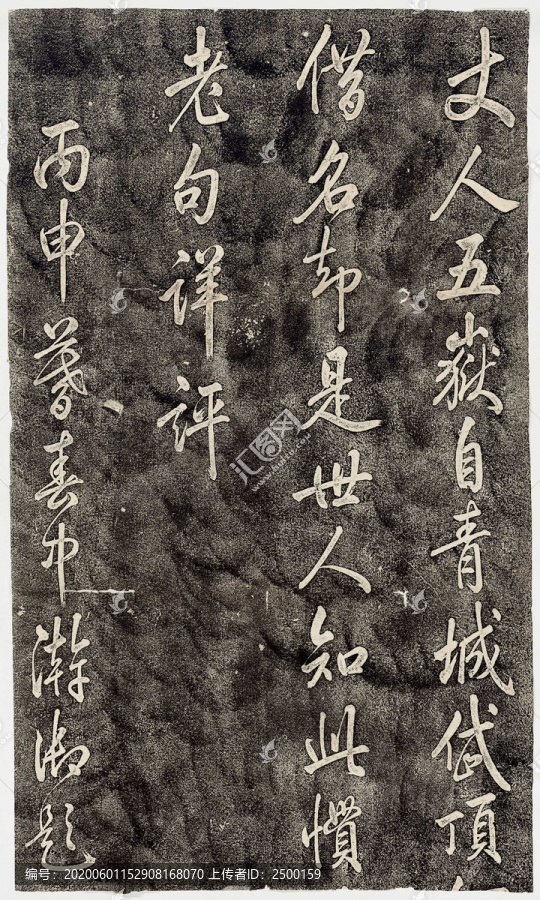 丈人五嶽自青城岱頂
借名却是世人知此慣
老句詳評
丙申暮春中澣御題
汇图网
编号：20200601152908168070 上传者ID：2500159